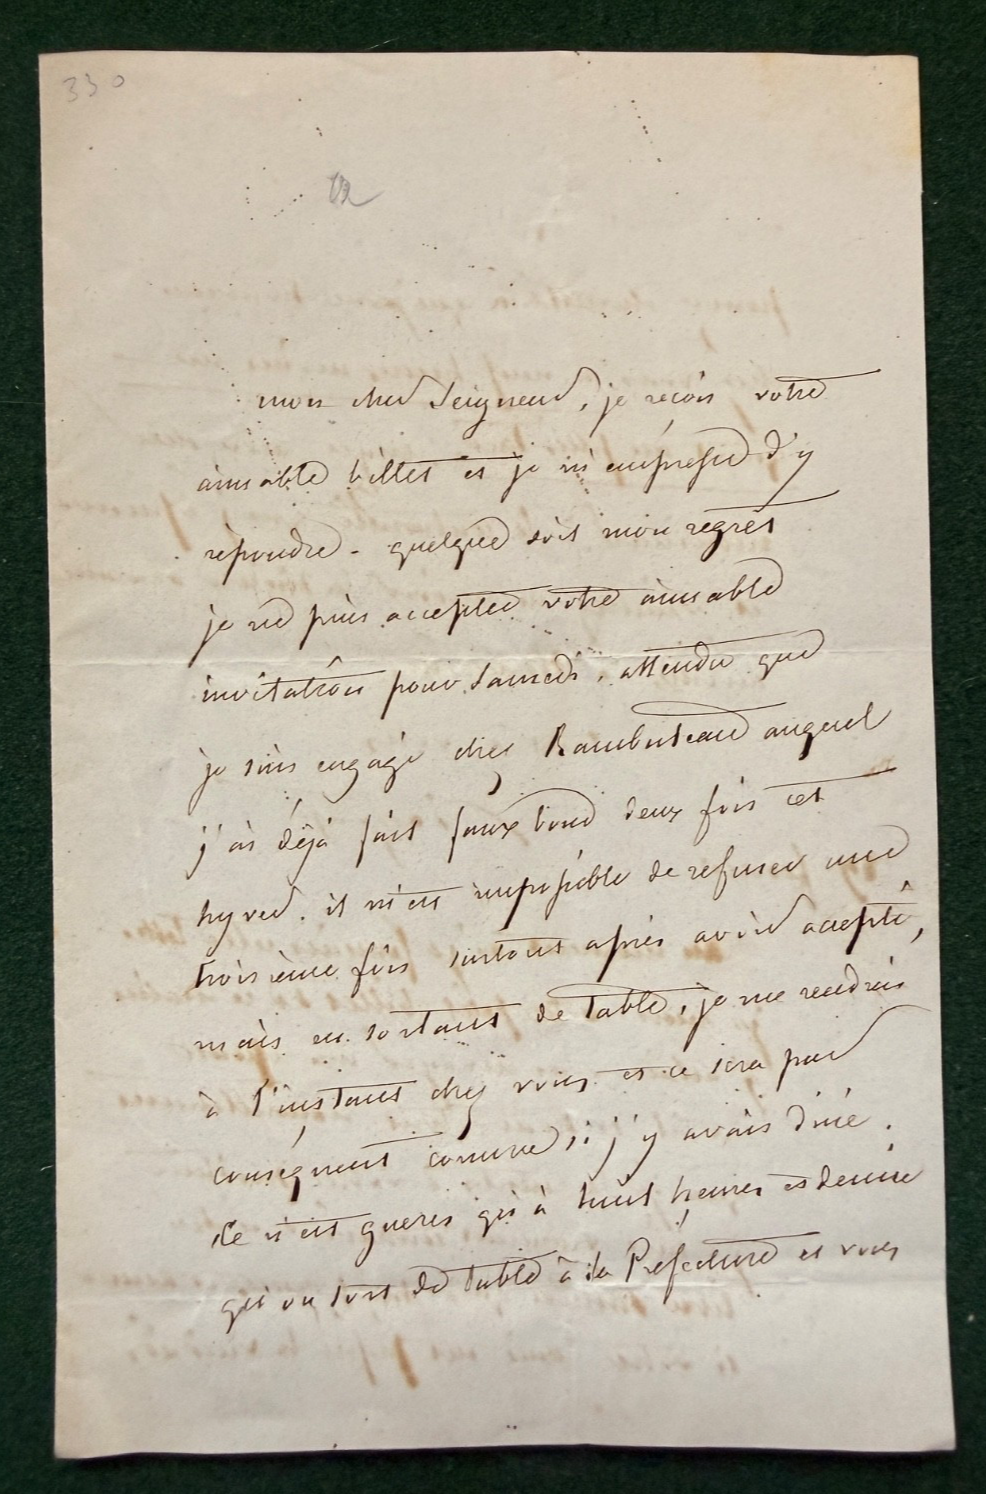 330
mon cher Seigneur, je reçois votre
aimable billet et je m'empresse d'y
répondre - quelque soit mon regret
je ne puis accepter votre aimable
invitation pour Samedi, attendu que
je suis engagé chez Rambuteau auquel
j'ai déjà fait faux bond deux fois cet
hyver. il m'est impossible de refuser une
troisième fois surtout après avoir accepté,
mais en sortant de table, je me rendrai
à l'instant chez vous et ce sera par
conséquent comme si j'y avais diné.
Ce n'est gueres qu'à huit heures et demie
qu'on sort de table à la Préfecture et vous